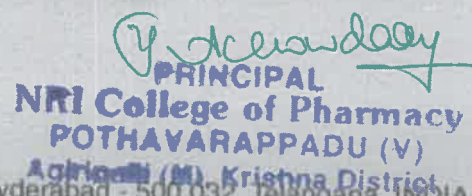 PRINCIPAL
NRI College of Pharmacy
POTHAVARAPPADU (V)
Agiripalli (M), Krishna District
yderabad - 500 032